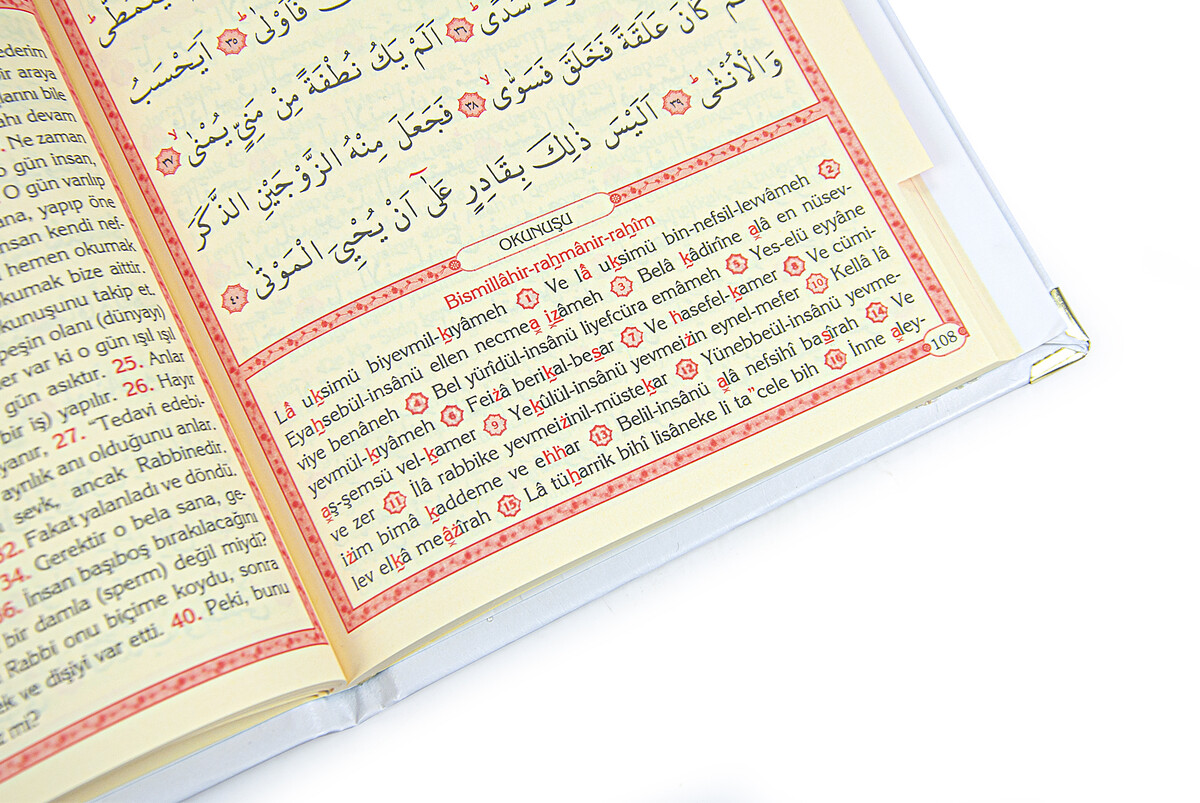 ederim
bir araya
larını bile
ahı devam
. Ne zaman
o gün insan,
O gün varılıp
ana, yapıp öne
nsan kendi nef-
hemen okumak
kumak bize aittir.
kunuşunu takip et.
peşin olanı (dünyayı)
er var ki o gün ışıl ışıl
gün asıktır. 25. Anlar
bir iş) yapılır. 26. Hayır
yanır, 27. “Tedavi edebi-
ayrılık anı olduğunu anlar.
sevk, ancak Rabbinedir.
32. Fakat yalanladı ve döndü.
34. Gerektir o bela sana, ge-
36. İnsan başıboş bırakılacağını
bir damla (sperm) değil miydi?
Rabbi onu biçime koydu, sonra
ek ve dişiyi var etti. 40. Peki, bunu
mi?
يَتَمَطّٰى
فَاَوْلٰى ۙ ﴿٣٥﴾ اَيَحْسَبُ
سُدًى ﴿٣٦﴾ اَلَمْ يَكُ نُطْفَةً مِنْ مَنِيٍّ يُمْنٰى ﴿٣٧﴾
كَانَ عَلَقَةً فَخَلَقَ فَسَوّٰى ﴿٣٨﴾ فَجَعَلَ مِنْهُ الزَّوْجَيْنِ الذَّكَرَ
وَالْاُنْثٰى ﴿٣٩﴾ اَلَيْسَ ذٰلِكَ بِقَادِرٍ عَلٰٓى اَنْ يُحْيِيَ الْمَوْتٰى ﴿٤٠﴾
OKUNUŞU
Bismillâhir-rahmânir-rahîm
Lâ uksimü biyevmil-kıyâmeh 1 Ve lâ uksimü bin-nefsil-levvâmeh 2
Eyahsebül-insânü ellen necmea izâmeh 3 Belâ kâdirîne alâ en nüsev-
viye benâneh 4 Bel yürîdül-insânü liyefcüra emâmeh 5 Yes-elü eyyâne
yevmül-kıyâmeh 6 Feiżâ berikal-besar 7 Ve hasefel-kamer 8 Ve cümi-
aş-şemsü vel-kamer 9 Yekûlül-insânü yevmeiżin eynel-mefer 10 Kellâ lâ
ve zer 11 İlâ rabbike yevmeiżinil-müstekar 12 Yünebbeül-insânü yevme-
iżim bimâ kaddeme ve ehhar 13 Belil-insânü alâ nefsihî basîrah 14 Ve
lev elkâ meâżîrah 15 Lâ tüharrik bihî lisâneke li ta”cele bih 16 İnne aley-
108